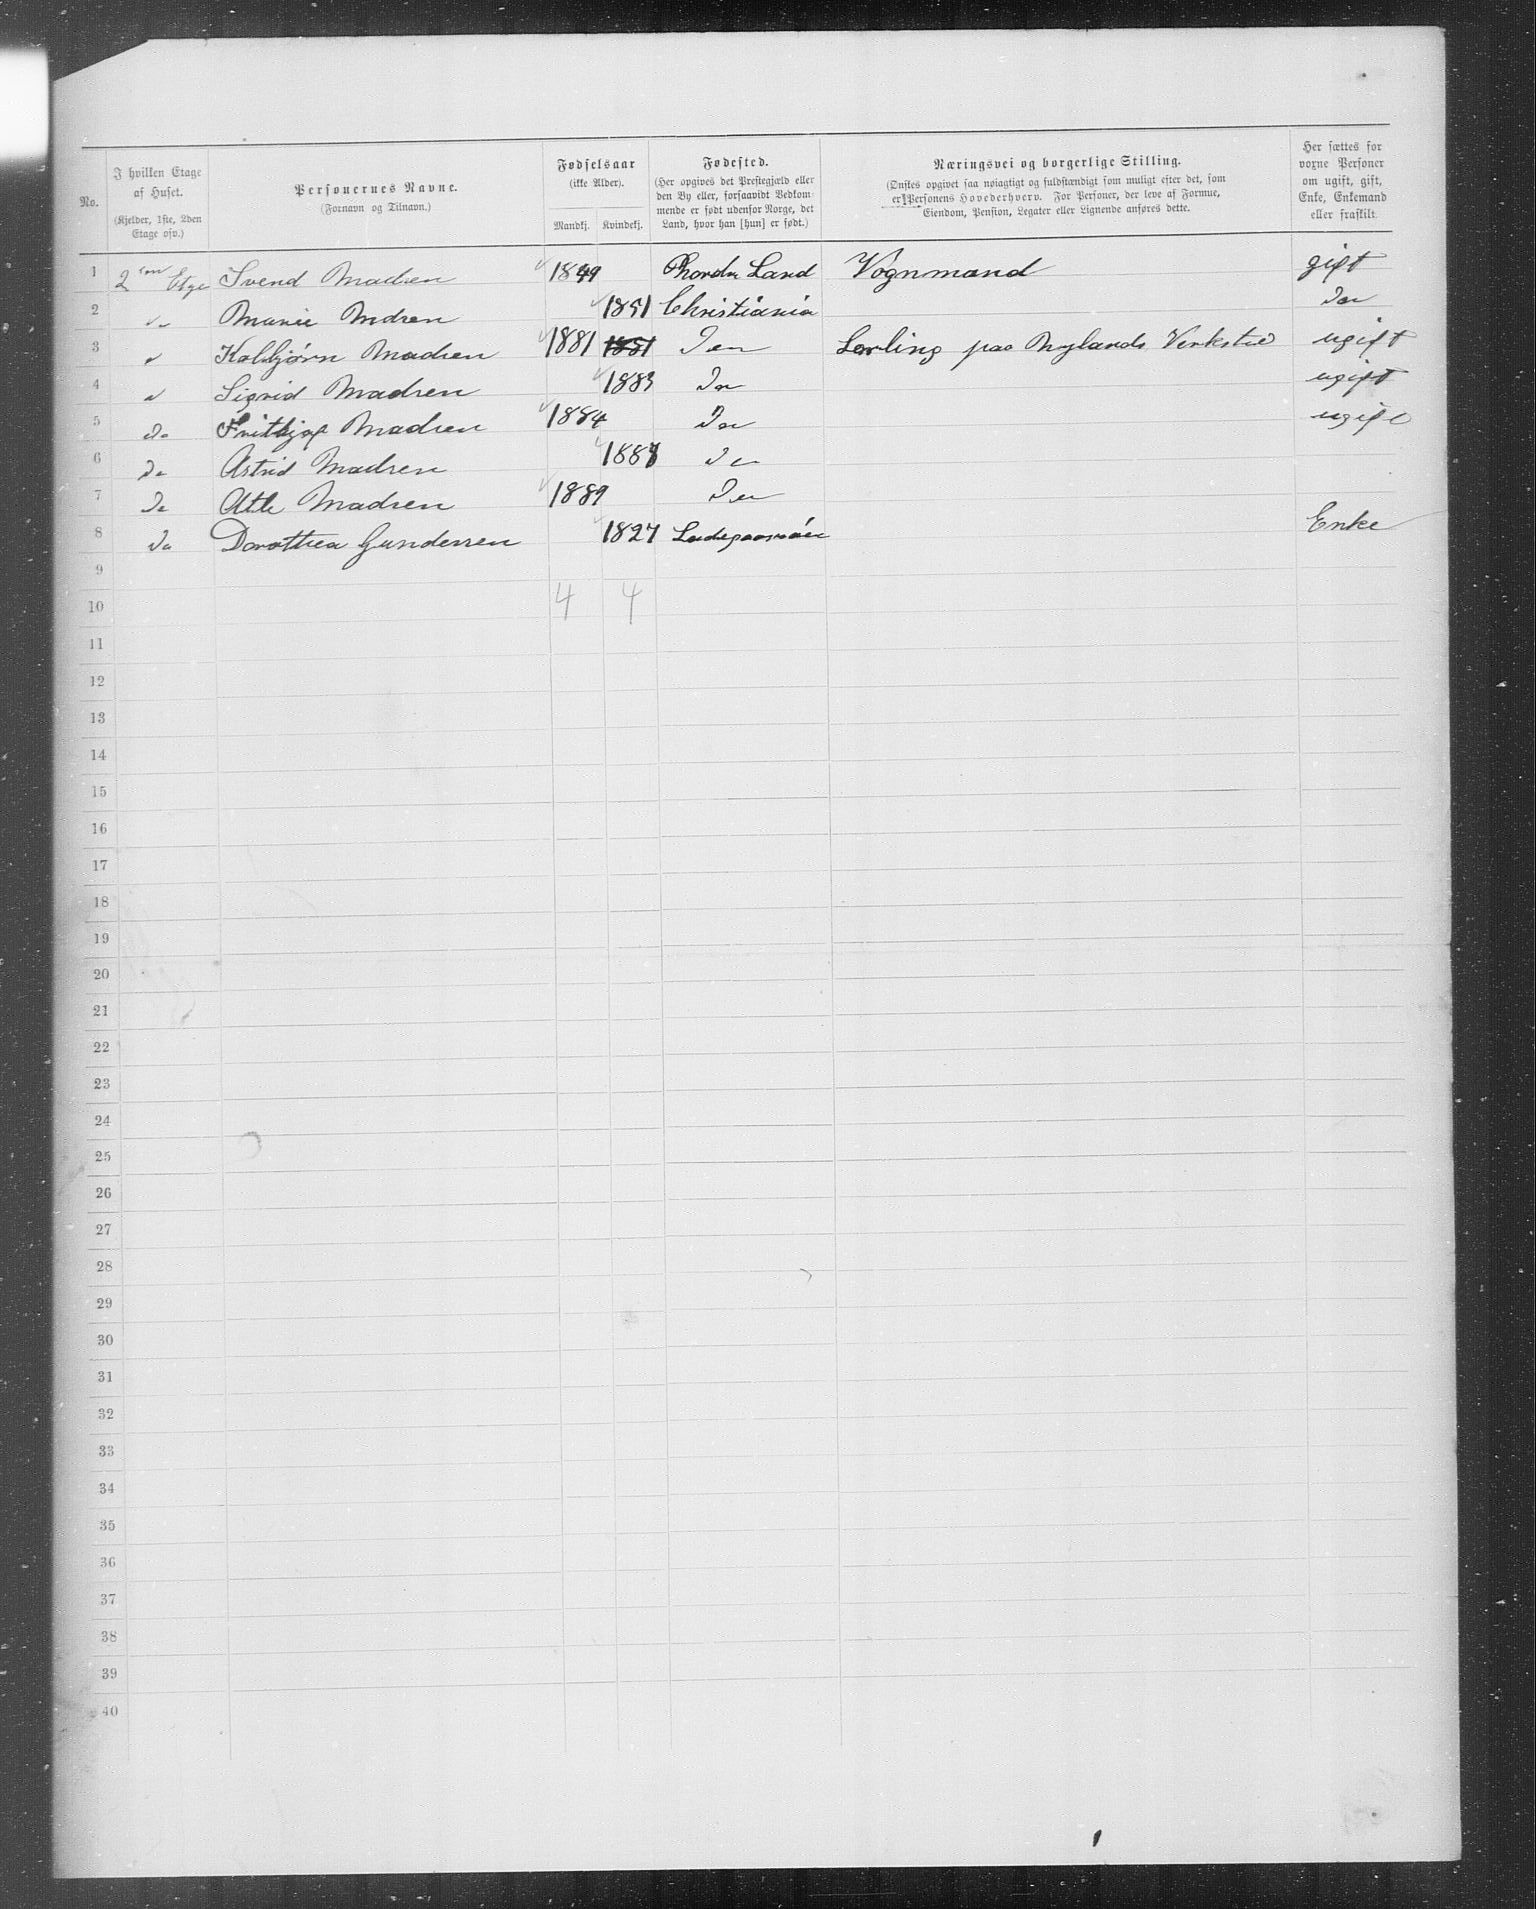 No.
I hvilken Etage af Huset.
(Kjelder, 1ste, 2den Etage osv.)
Personernes Navne.
(Fornavn og Tilnavn.)
Fødselsaar
(ikke Alder).
Mandkj.
Kvindekj.
Fødested.
(Her opgives det Prestegjæld eller den By eller, forsaavidt Vedkommende er født udenfor Norge, det Land, hvor han [hun] er født.)
Næringsvei og borgerlige Stilling.
(Ønskes opgivet saa nøiagtigt og fuldstændigt som muligt efter det, som er Personens Hovederhverv. For Personer, der leve af Formue, Eiendom, Pension, Legater eller Lignende anføres dette.
Her sættes for voxne Personer om ugift, gift, Enke, Enkemand eller fraskilt.
1 2 Etge Svend Madsen 1849 Land Vognmand gift
2 Marie Madsen 1851 Christiania Do
3 Kolbjørn Madsen 1881 1881 Do Lærling paa Nylands Verksted ugift
4 Sigrid Madsen 1883 Do ugift
5 Do Fritjof Madsen 1884 Do ugift
6 Do Astrid Madsen 1887 Do
7 Do Atle Madsen 1889 Do
8 Do Dorothea Gundersen 1827 Ladegaardsøen Enke
9
10 4 4
11
12
13
14
15
16
17
18
19
20
21
22
23
24
25
26
27
28
29
30
31
32
33
34
35
36
37
38
39
40